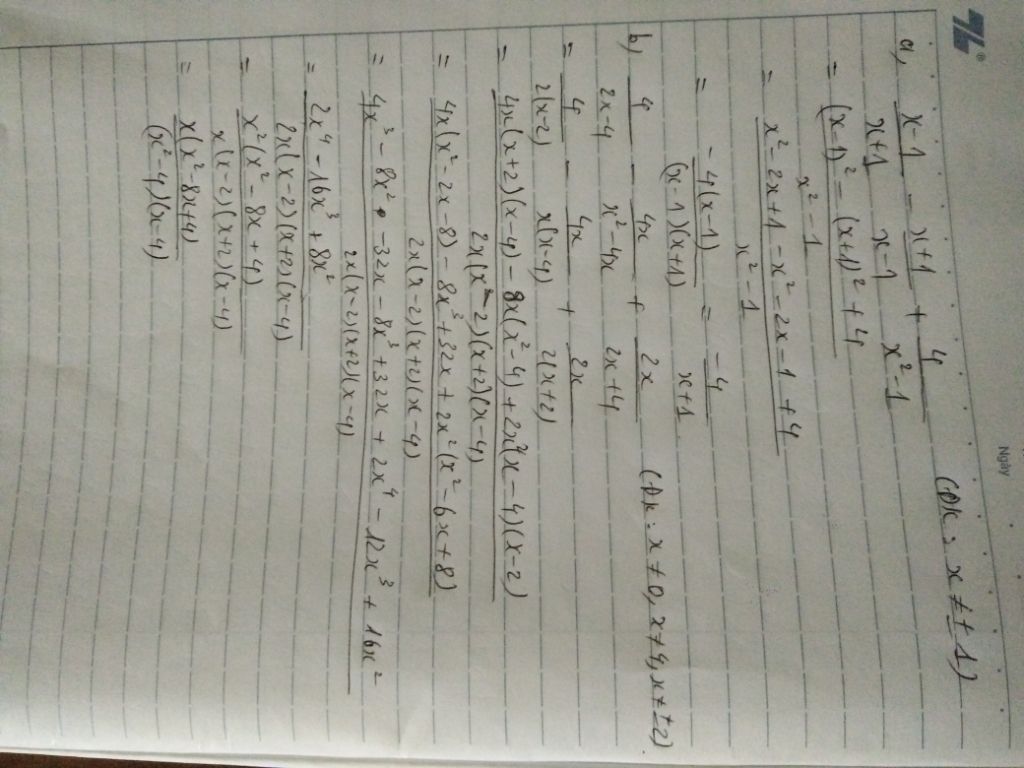 Ngày
a, x-1/x+1 - x+1/x-1 + 4/x²-1 (Đk: x ≠ ± 1)
= (x-1)² - (x+1)² + 4/x²-1
= x² - 2x+1 - x² - 2x - 1 + 4/x² - 1
= -4(x-1)/(x-1)(x+1) = -4/x+1
b) 4/2x-4 - 4x/x²-4x + 2x/2x+4 (Đk: x ≠ 0, x ≠ 4, x ≠ ±2)
= 4/2(x-2) - 4x/x(x-4) + 2x/2(x+2)
= 4x(x+2)(x-4) - 8x(x²-4) + 2x²(x-4)(x-2)/2x(x²-2)(x+2)(x-4)
= 4x(x²-2x-8) - 8x³ + 32x + 2x²(x²-6x+8)/2x(x-2)(x+2)(x-4)
= 4x³ - 8x² - 32x - 8x³ + 32x + 2x⁴ - 12x³ + 16x²/2x(x-2)(x+2)(x-4)
= 2x⁴ - 16x³ + 8x²/2x(x-2)(x+2)(x-4)
= x²(x²-8x+4)/x(x-2)(x+2)(x-4)
= x(x²-8x+4)/(x²-4)(x-4)